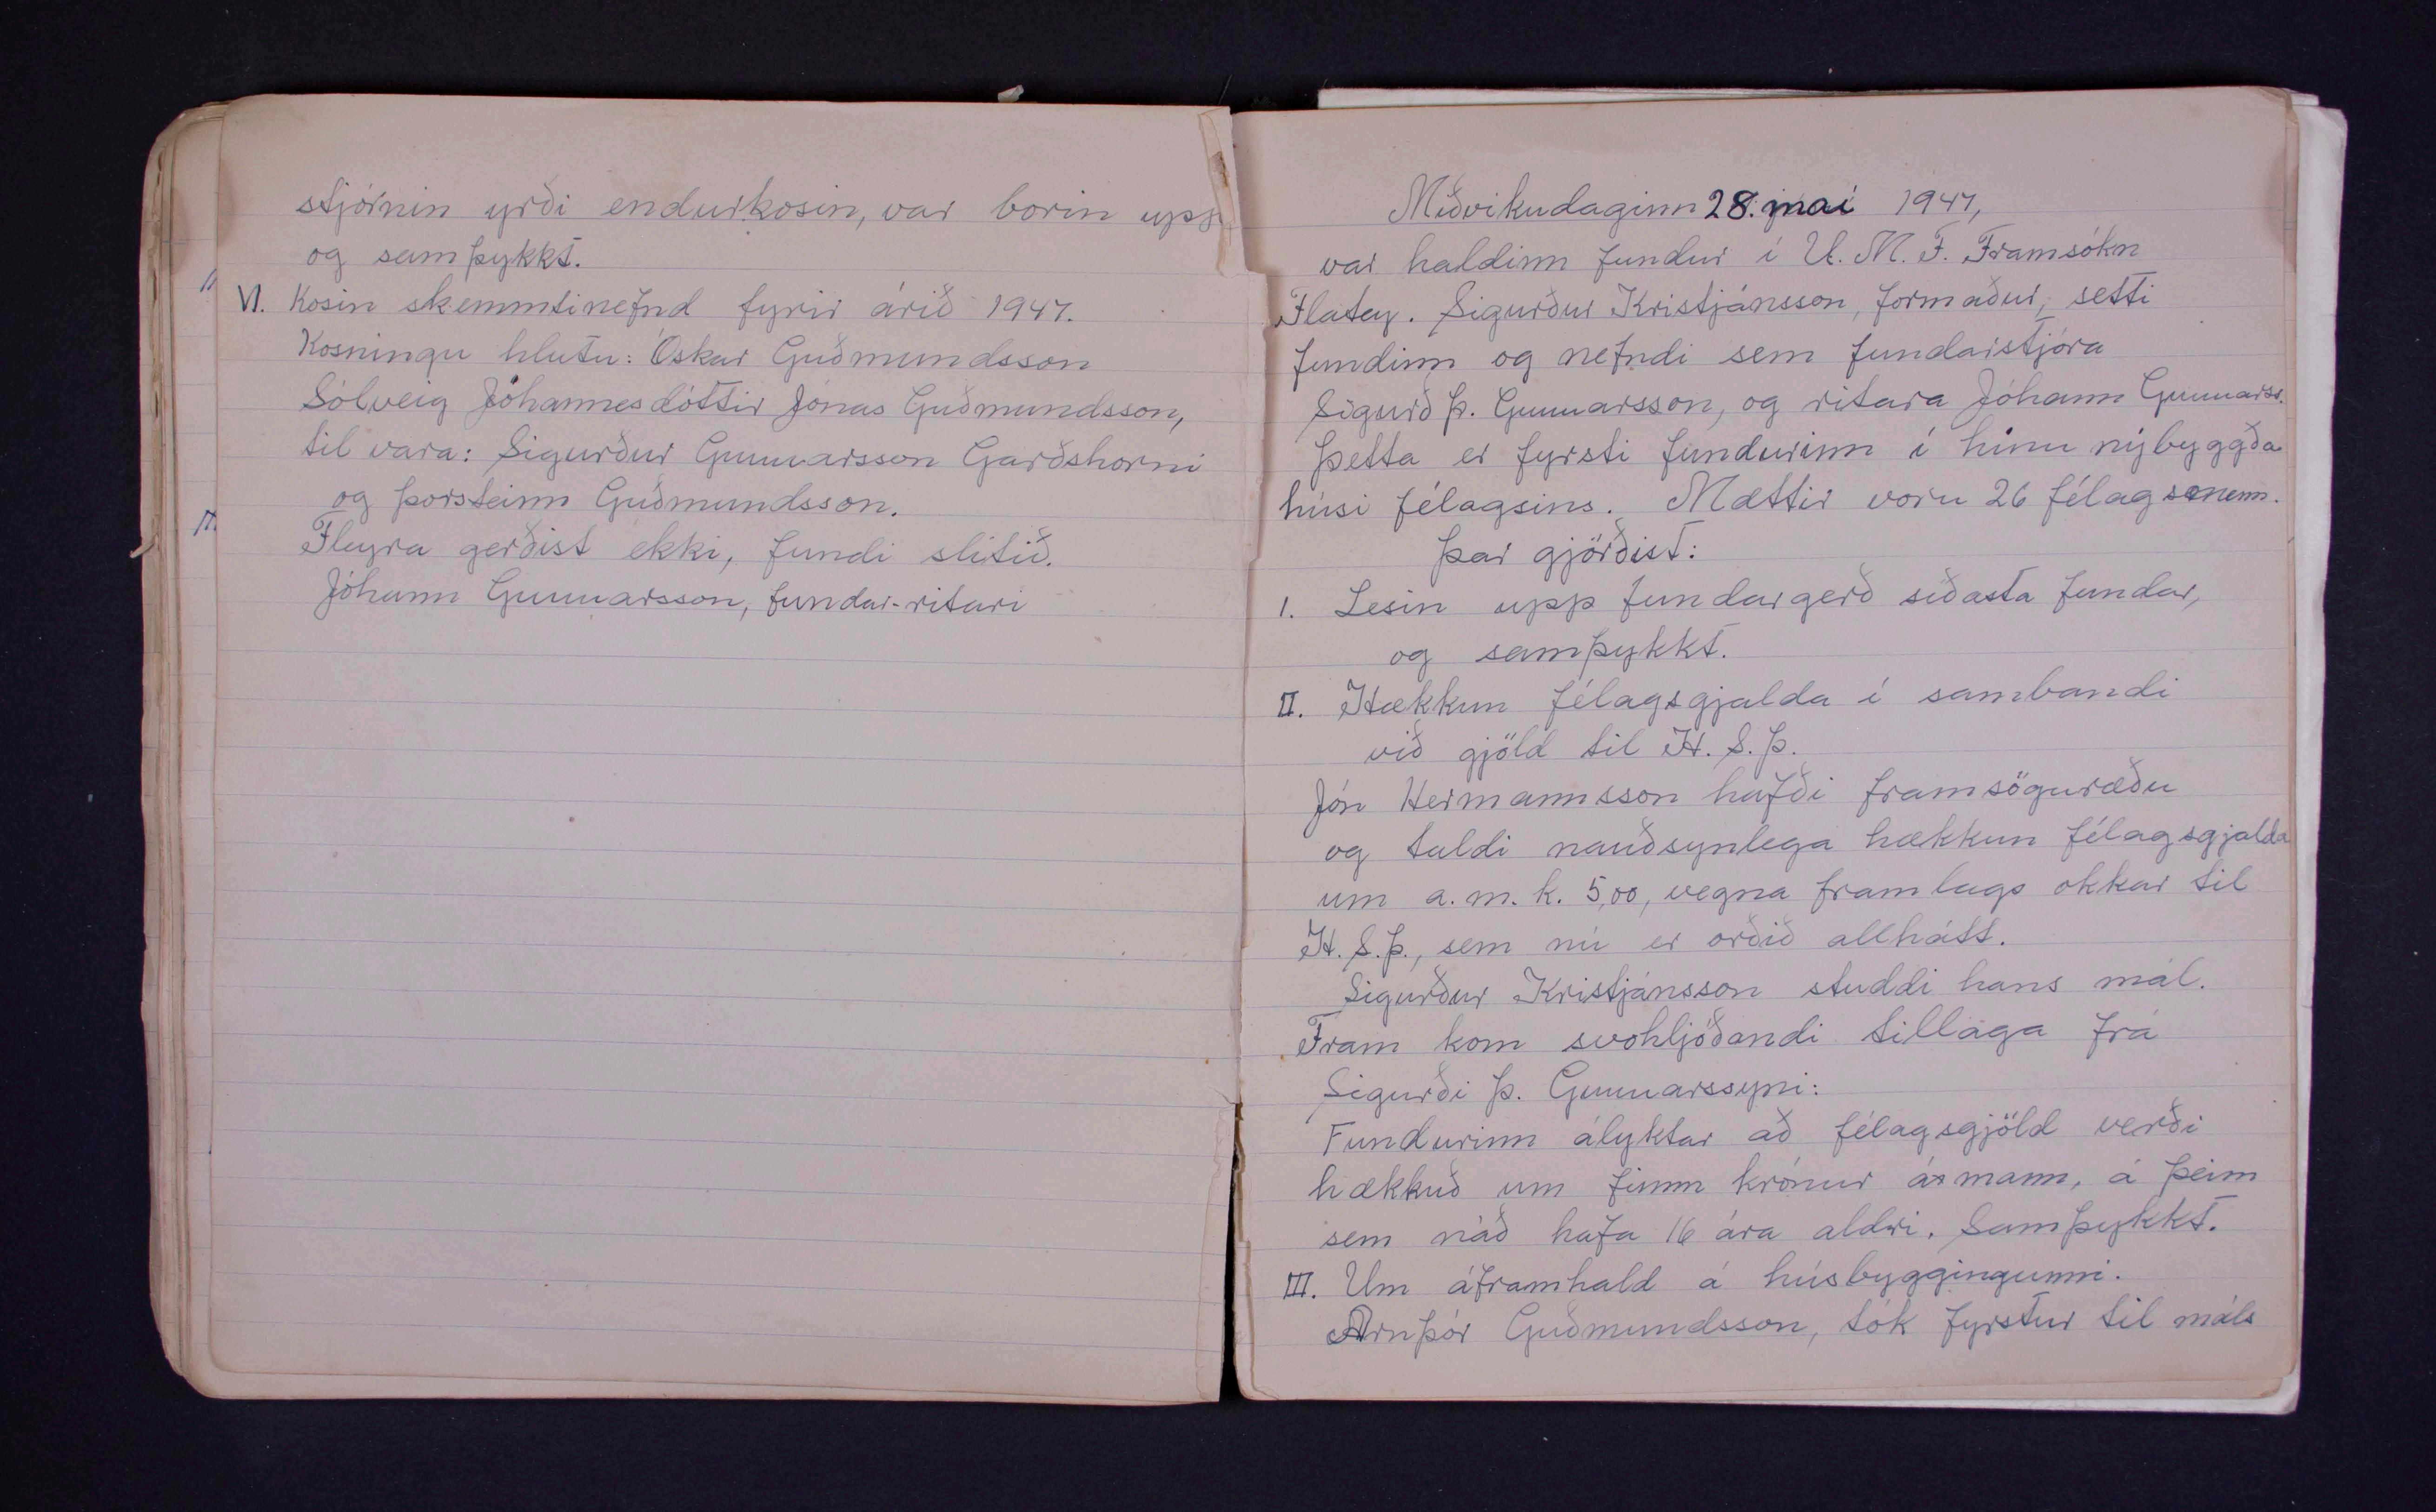 stjórnin yrði endurkosin, var borin upp
og samþykkt.
VI. Kosin skemmtinefnd fyrir árið 1947.
Kosningu hlutu: Óskar Guðmundsson
Sólveig Jóhannesdóttir Jónas Guðmundsson,
til vara: Sigurður Gunnarsson Garðshorni
og Þorsteinn Guðmundsson.
Fleyra gerðist ekki, fundi slitið.
Jóhann Gunnarsson, fundar-ritari
Miðvikudaginn 28. maí 1947,
var haldinn fundur í U. M. F. Framsókn
Flatey. Sigurður Kristjánsson, formaður, setti
fundinn og nefndi sem fundarstjóra
Sigurð Þ. Gunnarsson, og ritara Jóhann Gunnarss.
Þetta er fyrsti fundurinn í hinu nýbyggða
húsi félagsins. Mættir voru 26 félagsmenn.
Þar gjörðist:
I. Lesin upp fundargerð síðasta fundar,
og samþykkt.
II. Hækkun félagsgjalda í sambandi
við gjöld til H. S. Þ.
Jón Hermannsson hafði framsöguræðu
og taldi nauðsynlega hækkun félagsgjalda
um a. m. k. 5,00, vegna framlags okkar til
H. S. Þ., sem nú er orðið allhátt.
Sigurður Kristjánsson studdi hans mál.
Fram kom svohljóðandi tillaga frá
Sigurði Þ. Gunnarssyni:
Fundurinn ályktar að félagsgjöld verði
hækkuð um fimm krónur á mann, á þeim
sem náð hafa 16 ára aldri. Samþykkt.
III. Um áframhald á húsbyggingunni.
Arnþór Guðmundsson, tók fyrstur til máls